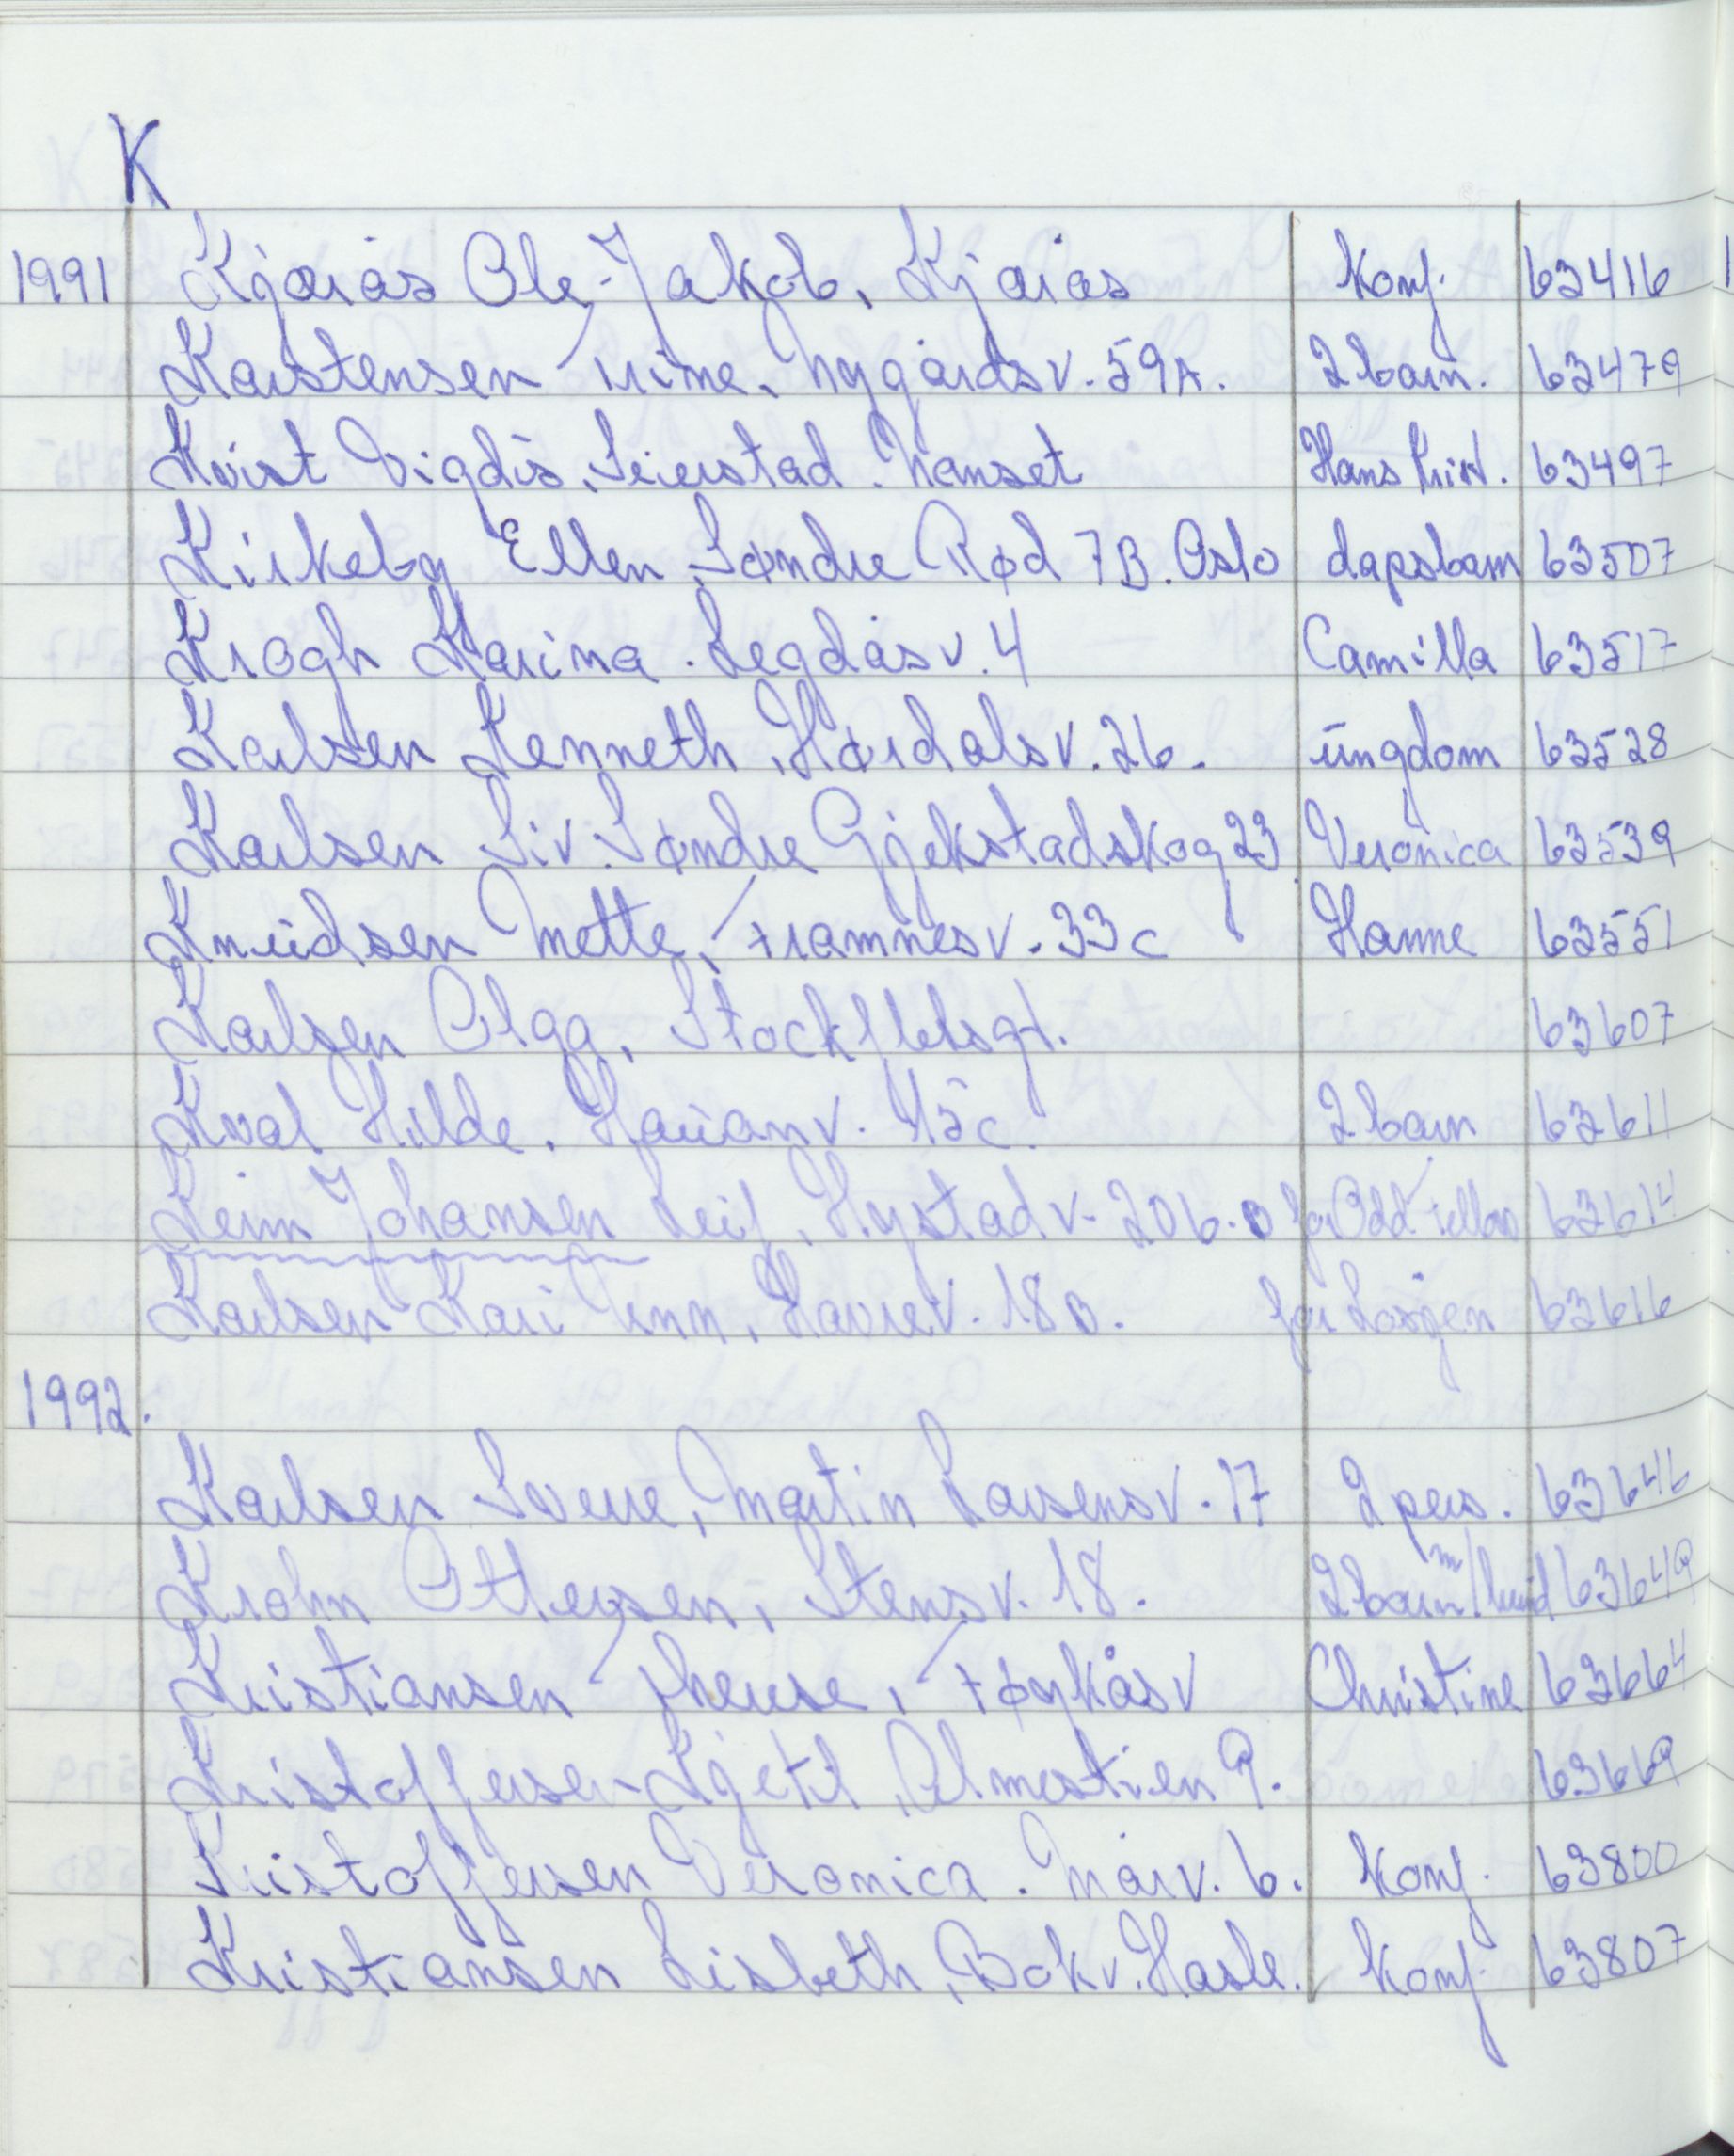 K
1991 Kjærås Ole-Jakob, Kjærås konf. 63416
Karstensen Trine, Nygårdsv. 59A. 2 barn. 63479
Kvist Vigdis, Seierstad. Hanset Hans Krist. 63497
Kirkeby Ellen, Søndre Rød 7B. Oslo dåpsbarn 63507
Krogh Karina. Legdåsv. 4 Camilla 63517
Karlsen Kenneth, Hørdalsv. 26. ungdom 63528
Karlsen Siv. Søndre Gjekstadskog 23 Veronica 63539
Knudsen Mette, Framnesv. 33c Hanne 63551
Karlsen Olga, Stockflethsgt. 63607
Kval Hilde. Hauanv. 45c. 2 barn 63611
Keim Johansen Leif, Hystadv. 206.0 for Odd Fellow 63614
Karlsen Kari Unn, Havrev. 18B. for Losjen 63616
1992.
Karlsen Sverre, Martin Larsensv. 17 2 pers. 63646
Krohn Ottersen, Stensv. 18. 2 barn m/hund 63649
Kristiansen Therese, Frøykåsv Christine 63664
Kristoffersen Kjetil, Almestien 9. 63669
Kristoffersen Veronica. Mårv. 6. konf. 63800
Kristiansen Lisbeth, Bokv. Hasle. konf. 63807